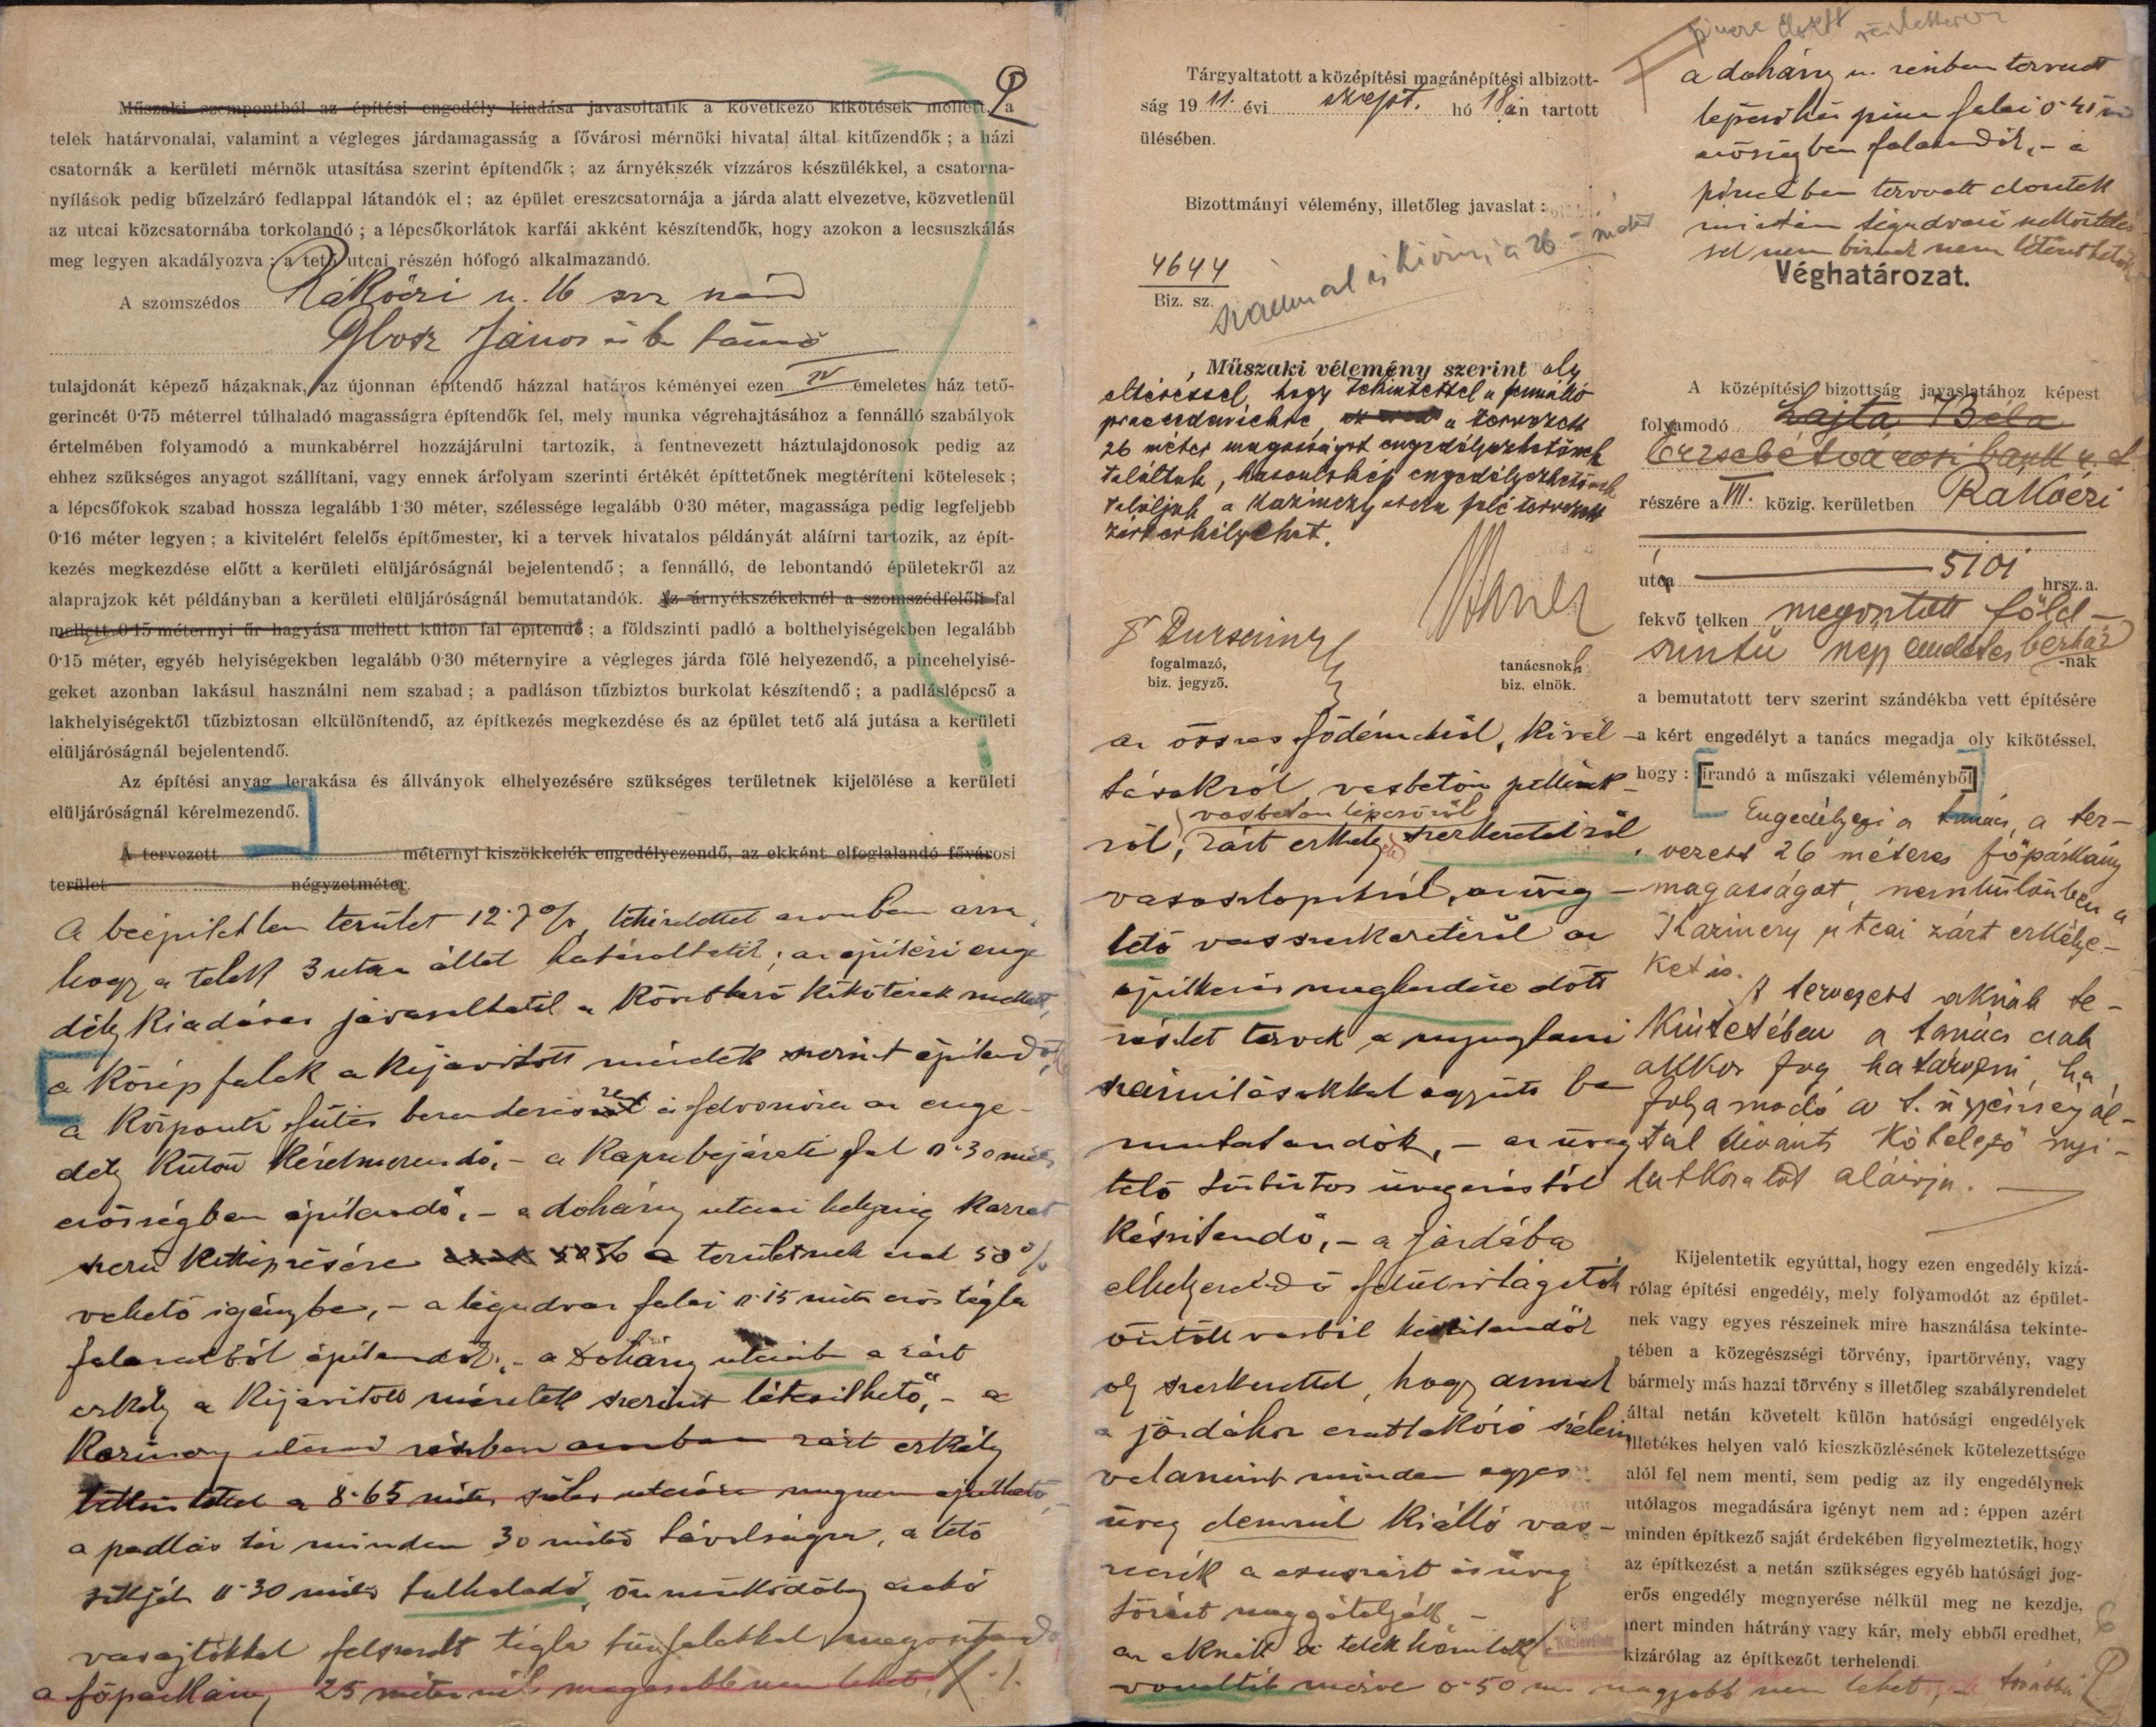 Műszaki szempontból az építési engedély kiadása javasoltatik a következő kikötések mellett: a
telek határvonalai, valamint a végleges járdamagasság a fővárosi mérnöki hivatal által kitűzendők ; a házi
csatornák a kerületi mérnök utasítása szerint építendők ; az árnyékszék vízzáros készülékkel, a csatorna-
nyílások pedig bűzelzáró fedlappal látandók el ; az épület ereszcsatornája a járda alatt elvezetve, közvetlenül
az utcai közcsatornába torkolandó ; a lépcsőkorlátok karfái akként készítendők, hogy azokon a lecsuszkálás
meg legyen akadályozva ; a tető utcai részén hófogó alkalmazandó.
A szomszédos Rákóczi u. 16
János
tulajdonát képező házaknak, az újonnan építendő házzal határos kéményei ezen IV emeletes ház tető-
gerincét 0·75 méterrel túlhaladó magasságra építendők fel, mely munka végrehajtásához a fennálló szabályok
értelmében folyamodó a munkabérrel hozzájárulni tartozik, a fentnevezett háztulajdonosok pedig az
ehhez szükséges anyagot szállítani, vagy ennek árfolyam szerinti értékét építtetőnek megtéríteni kötelesek ;
a lépcsőfokok szabad hossza legalább 1·30 méter, szélessége legalább 0·30 méter, magassága pedig legfeljebb
0·16 méter legyen ; a kivitelért felelős építőmester, ki a tervek hivatalos példányát aláírni tartozik, az épít-
kezés megkezdése előtt a kerületi elüljáróságnál bejelentendő ; a fennálló, de lebontandó épületekről az
alaprajzok két példányban a kerületi elüljáróságnál bemutatandók. Az árnyékszékeknél a szomszédfelőli fal
mellett 0·15 méternyi űr hagyása mellett külön fal építendő ; a földszinti padló a bolthelyiségekben legalább
0·15 méter, egyéb helyiségekben legalább 0·30 méternyire a végleges járda fölé helyezendő, a pincehelyisé-
geket azonban lakásul használni nem szabad ; a padláson tűzbiztos burkolat készítendő ; a padláslépcső a
lakhelyiségektől tűzbiztosan elkülönítendő, az építkezés megkezdése és az épület tető alá jutása a kerületi
elüljáróságnál bejelentendő.
Az építési anyag lerakása és állványok elhelyezésére szükséges területnek kijelölése a kerületi
elüljáróságnál kérelmezendő.
A tervezett méternyi kiszökkelék engedélyezendő, az ekként elfoglalandó fővárosi
terület négyzetméter.
A beépítetlen terület 12·7 %, tekintettel azonban arra,
hogy a telek 3 utca által határoltatik ; az építési enge
dély kiadása javasoltatik a következő kikötések mellett,
a közép falak a kijavított méretek szerint építendők,
a központi fűtés berendezésére és felvonóra az enge-
dély külön kérelmezendő, – a kapubejárati fal 0·30 méter
erősségben építendő, – a dohány utcai helyiség karzat
szerű kiképzésére a területnek csak 50 %
vehető igénybe, – a légudvar falai 0·15 méter erős tégla
falazatból építendők, – a Dohány utcában a zárt
erkély a kijavított méretek szerint létesíthető, – a
Kazinczy utcai részben azonban zárt erkély
tekintettel a 8·65 méter széles utcára meg nem építhető,
a padlás tér minden 30 méter távolságra, a tető
síkját 0·30 méter túlhaladó, önműködőleg csukó
vasajtókkal felszerelt tégla tűzfalakkal megosztandó
a főpárkány 25 méternél magasabb nem lehet,
Tárgyaltatott a középítési magánépítési albizott-
ság 1911. évi szept. hó 18án tartott
ülésében.
Bizottmányi vélemény, illetőleg javaslat :
26 méter
4644
Biz. sz.
Műszaki vélemény szerint oly
eltéréssel, hogy tekintettel a fennálló
praecedensekre, a tervezett
26 méter magasságot engedélyezhetőnek
találtuk, hasonlókép engedélyezhetőnek
találjuk a Kazinczy utca felé tervezett
zárt erkélyeket.
fogalmazó,
biz. jegyző.
tanácsnok,
biz. elnök.
az összes födémekről, kivál
tásokról, vasbeton pillérek-
vasbeton lépcsőről
ről, zárt erkély szerkezetről,
vasoszlopokról, az üveg-
tető vasszerkezetéről az
építkezés megkezdése előtt
részlet tervek a nyugtani
számításokkal együtt be
mutatandók, – az üveg
tető drótbetétes üvegezéstől
készítendő, – a járdába
elhelyezendő felülvilágítók
öntött vasból készítendők
oly szerkezettel, hogy annak
a járdához csatlakozó szélein
valamint minden egyes
üveg elemnél kiálló vas-
recék a csuszást és üveg
törést meggátolják –
az aknák a telek határ
vonaltól mérve 0·50 m nagyobb nem lehet, – továbbá
a dohány u. részben tervezett
lépcsőház pince falai 0·45 m
erősségben falazandók, – a
pincében tervezett closetek
miután légudvari
sel nem bírnak nem létesíthetők
Véghatározat.
A középítési bizottság javaslatához képest
folyamodó Lajta Béla
Erzsébetvárosi bank r. t.
részére a VII. közig. kerületben Rákóczi
útca 5101 hrsz. a.
fekvő telken megosztott föld-
szintű négy emeletes bérház
-nak
a bemutatott terv szerint szándékba vett építésére
a kért engedélyt a tanács megadja oly kikötéssel,
hogy : [irandó a műszaki véleményből]
Engedélyezi a tanács a ter-
vezett 26 méteres főpárkány
magasságot, nemkülönben a
Kazinczy utcai zárt erkélye-
ket is.
A tervezett aknák te-
kintetében a tanács csak
akkor fog határozni, ha
folyamodó a t. ügyészség ál-
tal kívánt kötelező nyi-
latkozatot aláírja.
Kijelentetik egyúttal, hogy ezen engedély kizá-
rólag építési engedély, mely folyamodót az épület-
nek vagy egyes részeinek mire használása tekinte-
tében a közegészségi törvény, ipartörvény, vagy
bármely más hazai törvény s illetőleg szabályrendelet
által netán követelt külön hatósági engedélyek
illetékes helyen való kieszközlésének kötelezettsége
alól fel nem menti, sem pedig az ily engedélynek
utólagos megadására igényt nem ad : éppen azért
minden építkező saját érdekében figyelmeztetik, hogy
az építkezést a netán szükséges egyéb hatósági jog-
erős engedély megnyerése nélkül meg ne kezdje,
mert minden hátrány vagy kár, mely ebből eredhet,
kizárólag az építkezőt terhelendi.